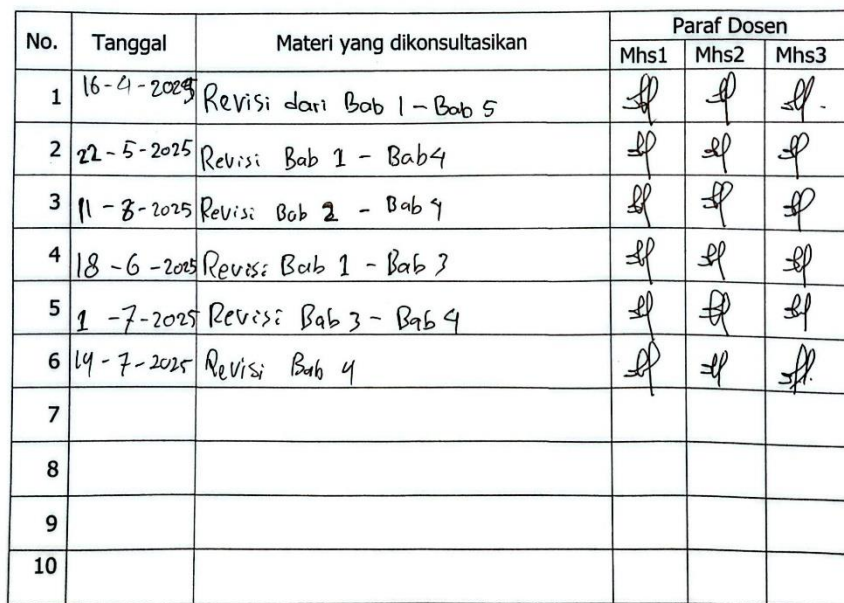 No. Tanggal Materi yang dikonsultasikan Paraf Dosen
Mhs1 Mhs2 Mhs3
1 16-4-2025 Revisi dari Bab 1 - Bab 5
2 22-5-2025 Revisi Bab 1 - Bab 4
3 11-8-2025 Revisi Bab 2 - Bab 4
4 18-6-2025 Revisi Bab 1 - Bab 3
5 1-7-2025 Revisi Bab 3 - Bab 4
6 14-7-2025 Revisi Bab 4
7
8
9
10